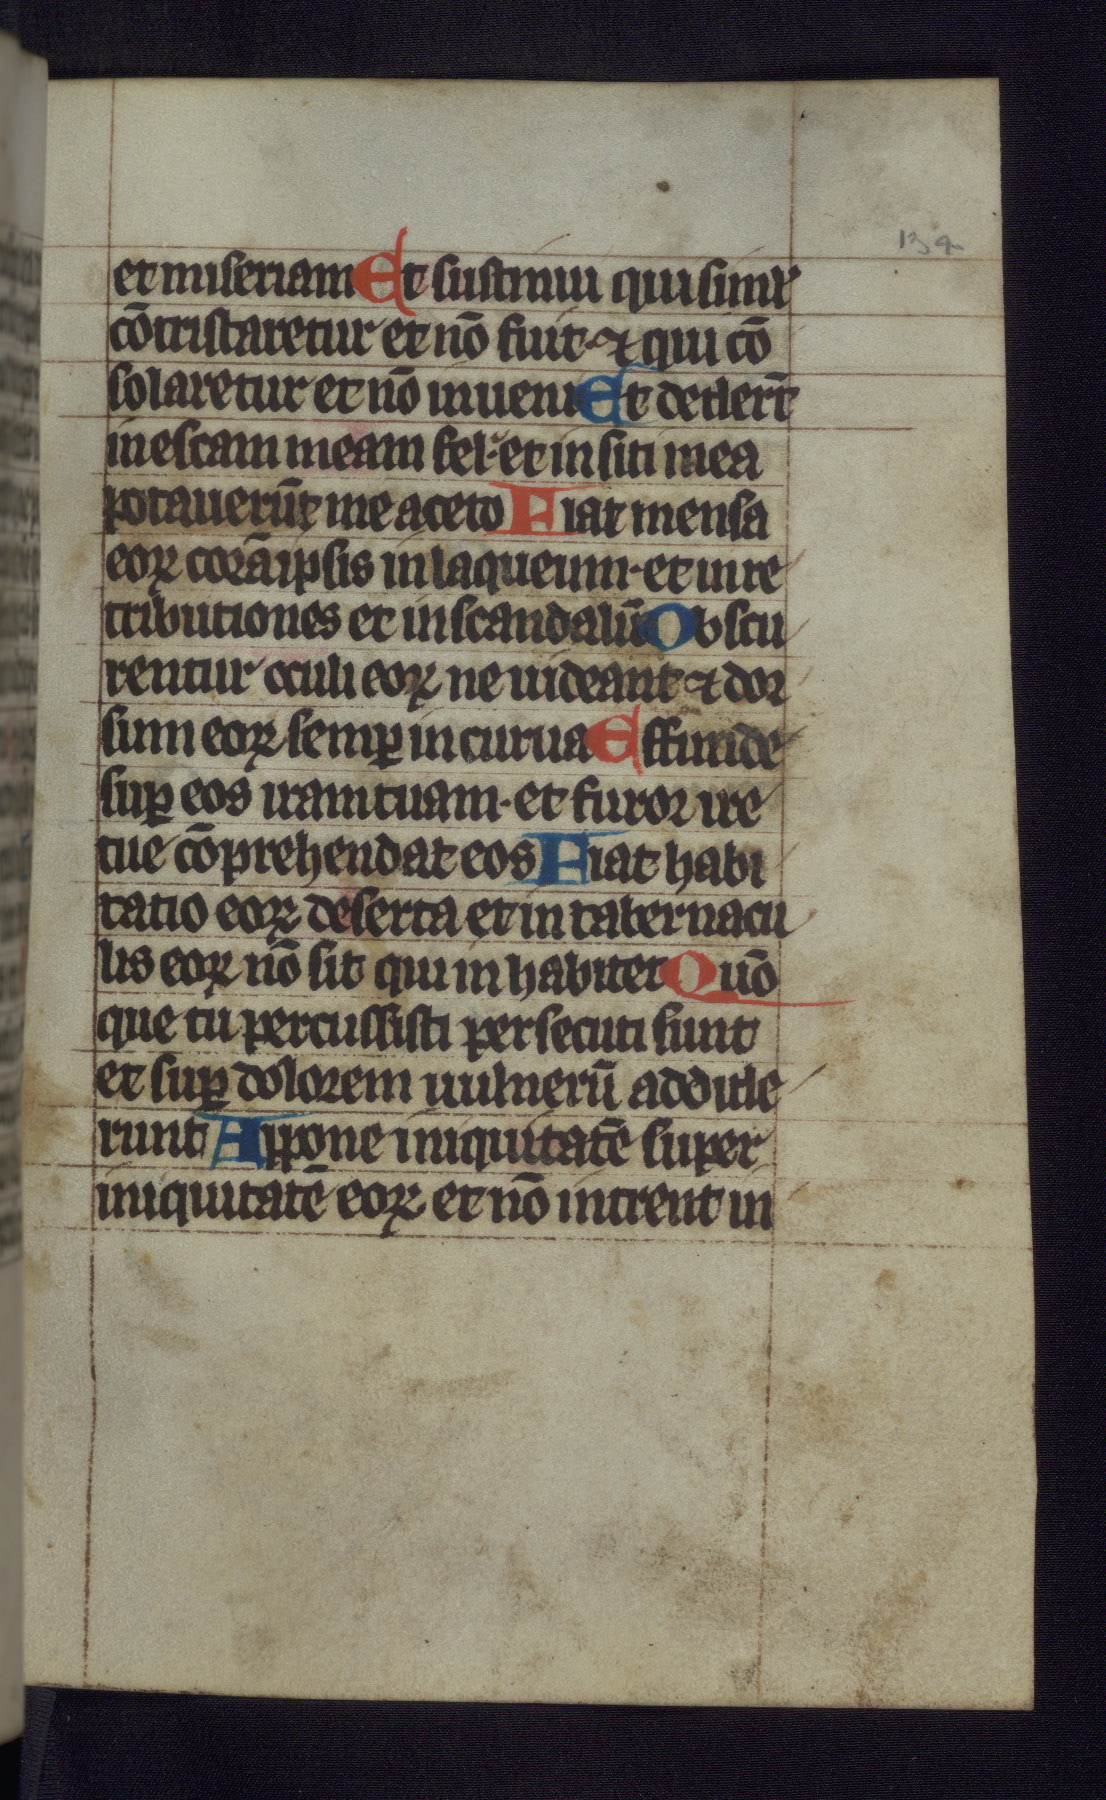 134
et miseriam Et sustinui qui simĺ
cōtristaretur et nō fuit ⁊ qui cō
solaretur et nō inueni Et dederūt
in escam meam fel· et in siti mea
potauerūt me aceto Fiat mensa
eoꝝ corā ipsis in laqueum· et in re
tributiones et in scandalū Obscu
rentur oculi eoꝝ ne uideant ⁊ dor
sum eoꝝ semꝑ incurua Effunde
suꝑ eos iram tuam· et furor ire
tue cōprehendat eos Fiat habi
tatio eoꝝ deserta et in tabernacu
lis eoꝝ nō sit qui inhabitet Quō
que tu percussisti persecuti sunt
et suꝑ dolorem uulnerū addide
runt Appone iniquitatē super
iniquitatē eoꝝ et nō intrent in